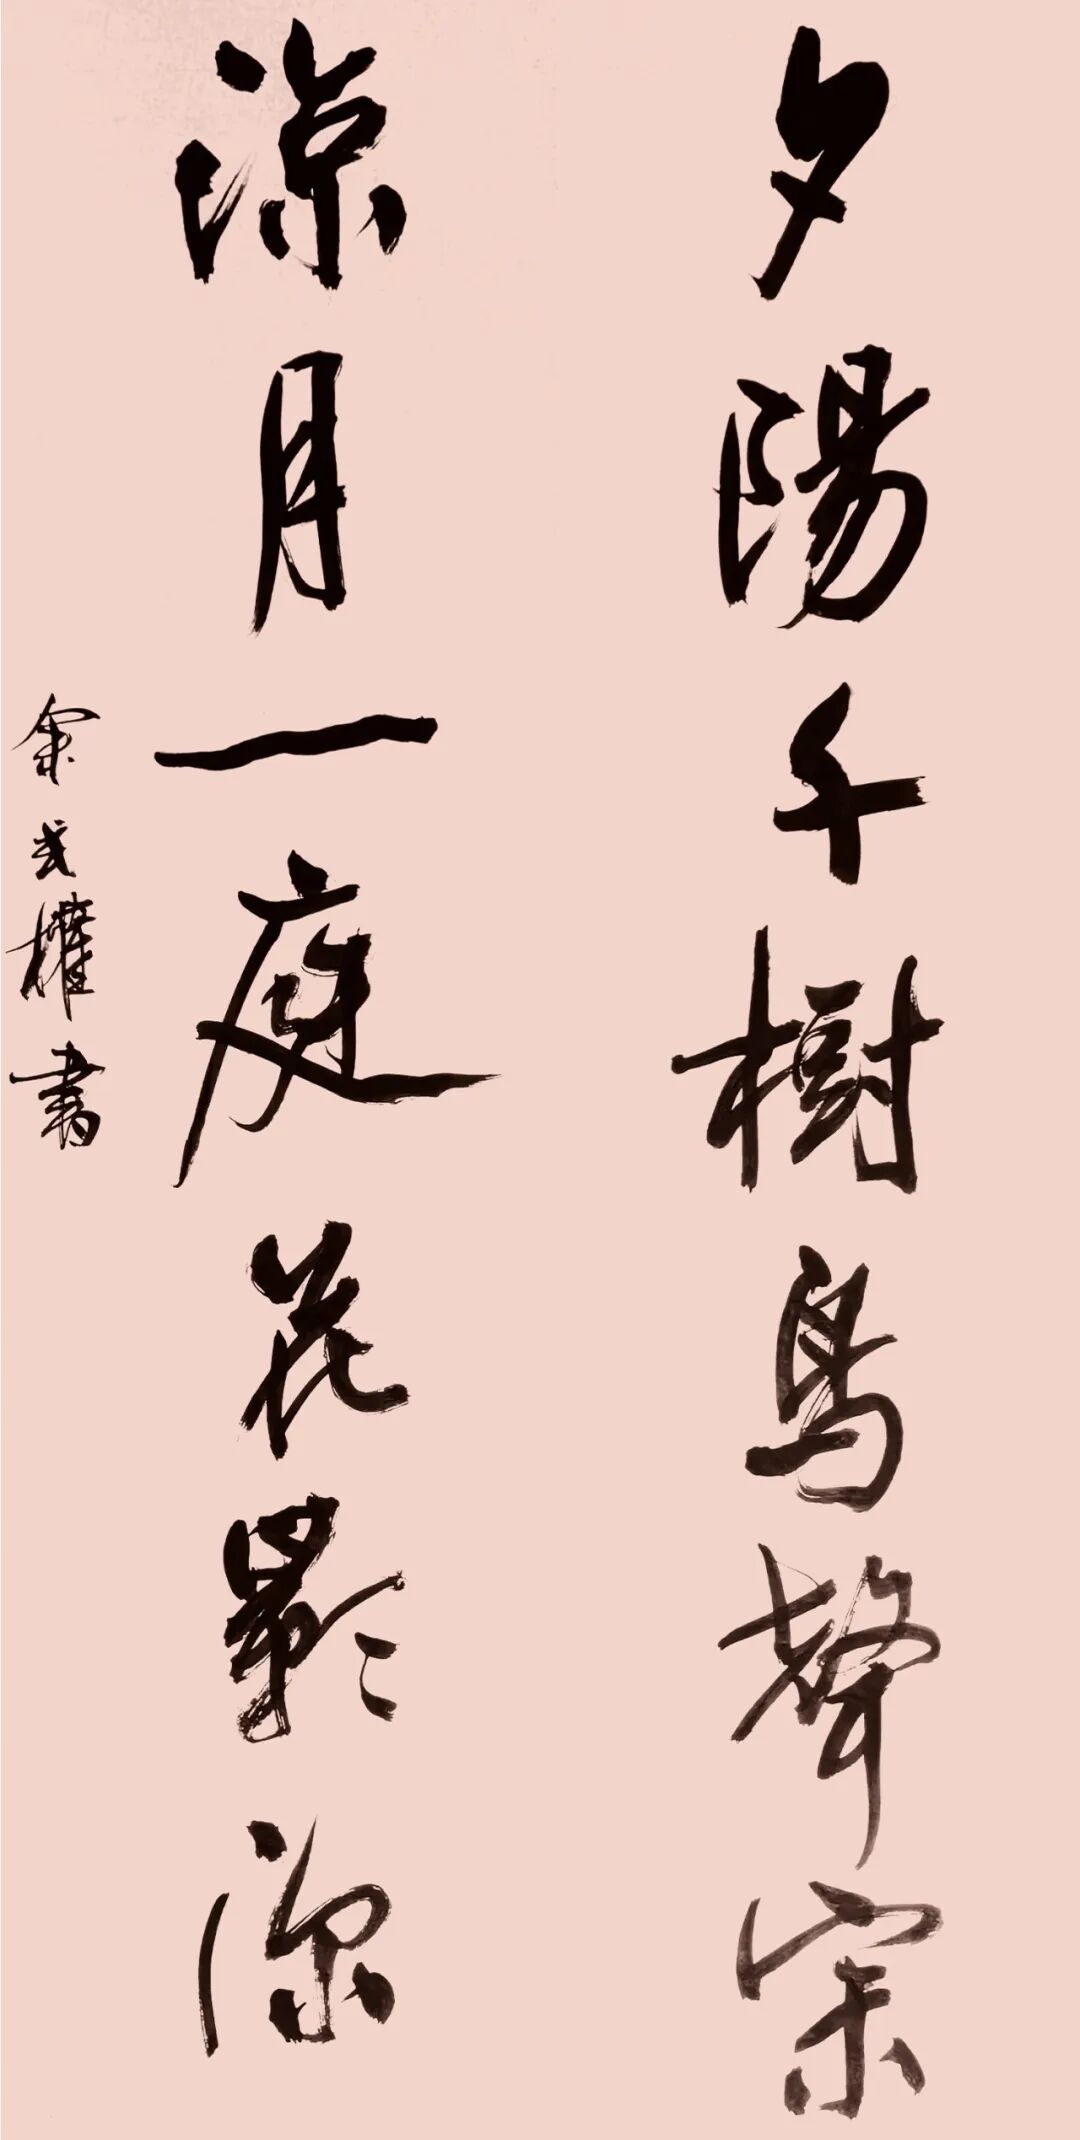 夕陽千樹鳥聲寂
涼月一庭花影深
余武權書